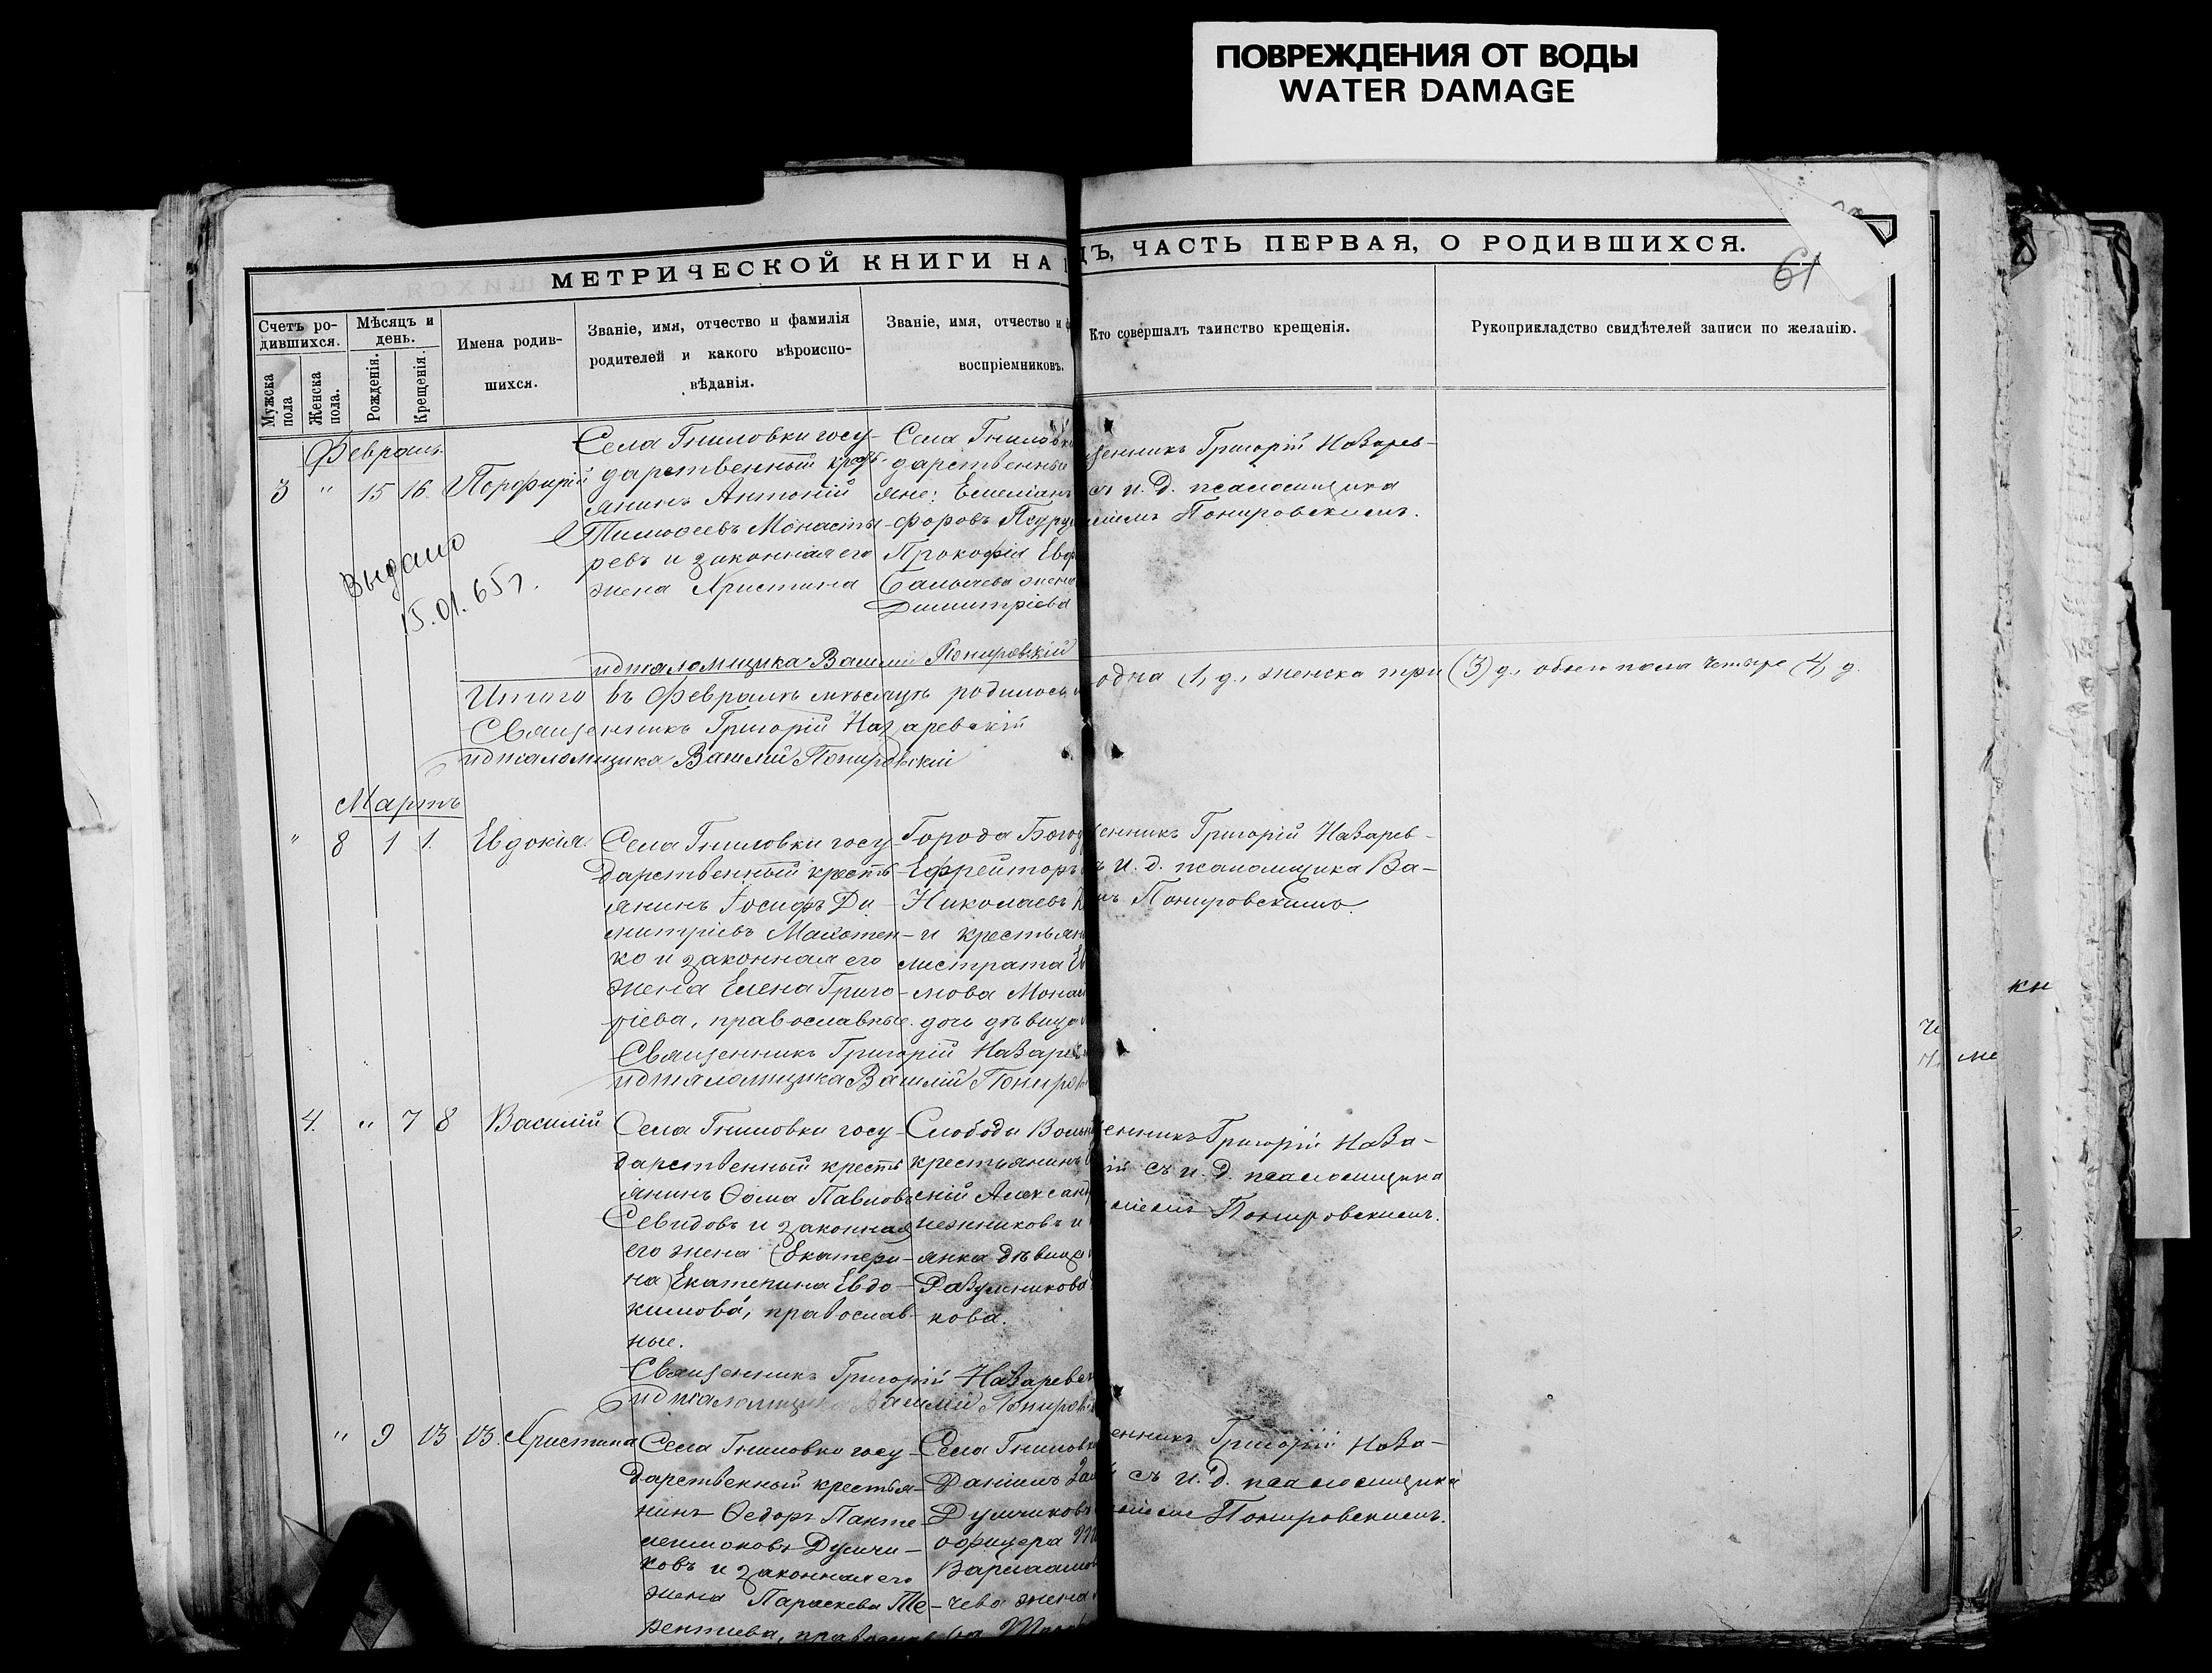 ПОВРЕЖДЕНИЯ ОТ ВОДЫ
WATER DAMAGE
МЕТРИЧЕСКОЙ КНИГИ НА
ДЪ, ЧАСТЬ ПЕРВАЯ, О РОДИВШИХСЯ.
61
Счетъ ро-
дившихся.
Мужска
пола
Женска
пола.
Мѣсяцъ и
день.
Рожденія.
Крещенія.
Имена родив-
шихся.
Званіе, имя, отчество и фамилія
родителей и какого вѣроиспо-
вѣданія.
Званіе, имя, отчество и ф
воспріемниковъ.
Кто совершалъ таинство крещенія.
Рукоприкладство свидѣтелей записи по желанію.
Февраль
3 " 15 16. Порфирій
Села Гниловки госу-
дарственный кресть-
янинъ Антоній
Тимофеевъ Монасты-
ревъ и законная его
жена Христина
Села Гниловки
дарственные
яне: Емеліанъ
форовъ
Прокофія Евф
жена
Димитріева
щенникъ Григорій Назарев-
съ и. д. псаломщика
Понировскимъ.
Выдано
15.01.65г.
и д псаломщика Василій Понировскій
Итого въ Февралѣ мѣсяцѣ родилось
одна (1) д., женска три (3) д., обоего пола четыре (4) д.
Священникъ Григорій Назаревскій
и д псаломщика Василій Понировскій
Мартъ
" 8 1 1. Евдокія.
Села Гниловки госу-
дарственный кресть-
янинъ Іосифъ Ди-
митріевъ Махотен-
ко и законная его
жена Елена Григо-
ріева, православные.
Города Богод
Ефрейторъ
Николаевъ
и крестьян
листрата
лова Монас
дочь дѣвица
щенникъ Григорій Назарев-
и. д. псаломщика Ва-
Понировскимъ.
Священникъ Григорій Назарев
и д псаломщика Василій Пониров
4. " 7 8 Василій
Села Гниловки госу-
дарственный кресть-
янинъ Ѳома Павловъ
Севидовъ и законная
его жена (Екатери-
на) Екатерина Евдо-
кимова, православ-
ные.
Слободы Вольн
крестьянинъ
сній Александ
нежниковъ и
янка дѣвица
Разумникова
кова.
щенникъ Григорій Наза-
ій съ и. д. псаломщика
Понировскимъ.
Священникъ Григорій Назаревск
и д псаломщика Василій Понировс
" 9 13 13. Христина
Села Гниловки госу-
дарственный крестья-
нинъ Ѳедоръ Панте-
леимоновъ Думчи-
ковъ и законная его
жена Параскева Те-
рентиева, православ
Села Гниловки
Даніилъ
Думчиковъ
офицера
Варлаамов
чева жена
щенникъ Григорій Наза-
съ и. д. псаломщика
Понировскимъ.
кн
ме